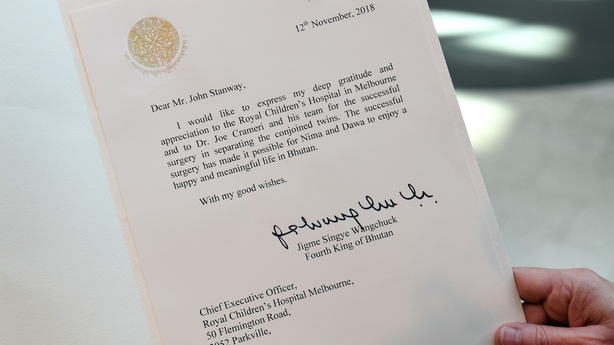 12th November, 2018
Dear Mr. John Stanway,
I would like to express my deep gratitude and
appreciation to the Royal Children's Hospital in Melbourne
and to Dr. Joe Crameri and his team for the successful
surgery in separating the conjoined twins. The successful
surgery has made it possible for Nima and Dawa to enjoy a
happy and meaningful life in Bhutan.
With my good wishes.
Jigme Singye Wangchuck
Fourth King of Bhutan
Chief Executive Officer,
Royal Children's Hospital Melbourne,
50 Flemington Road,
3052 Parkville,